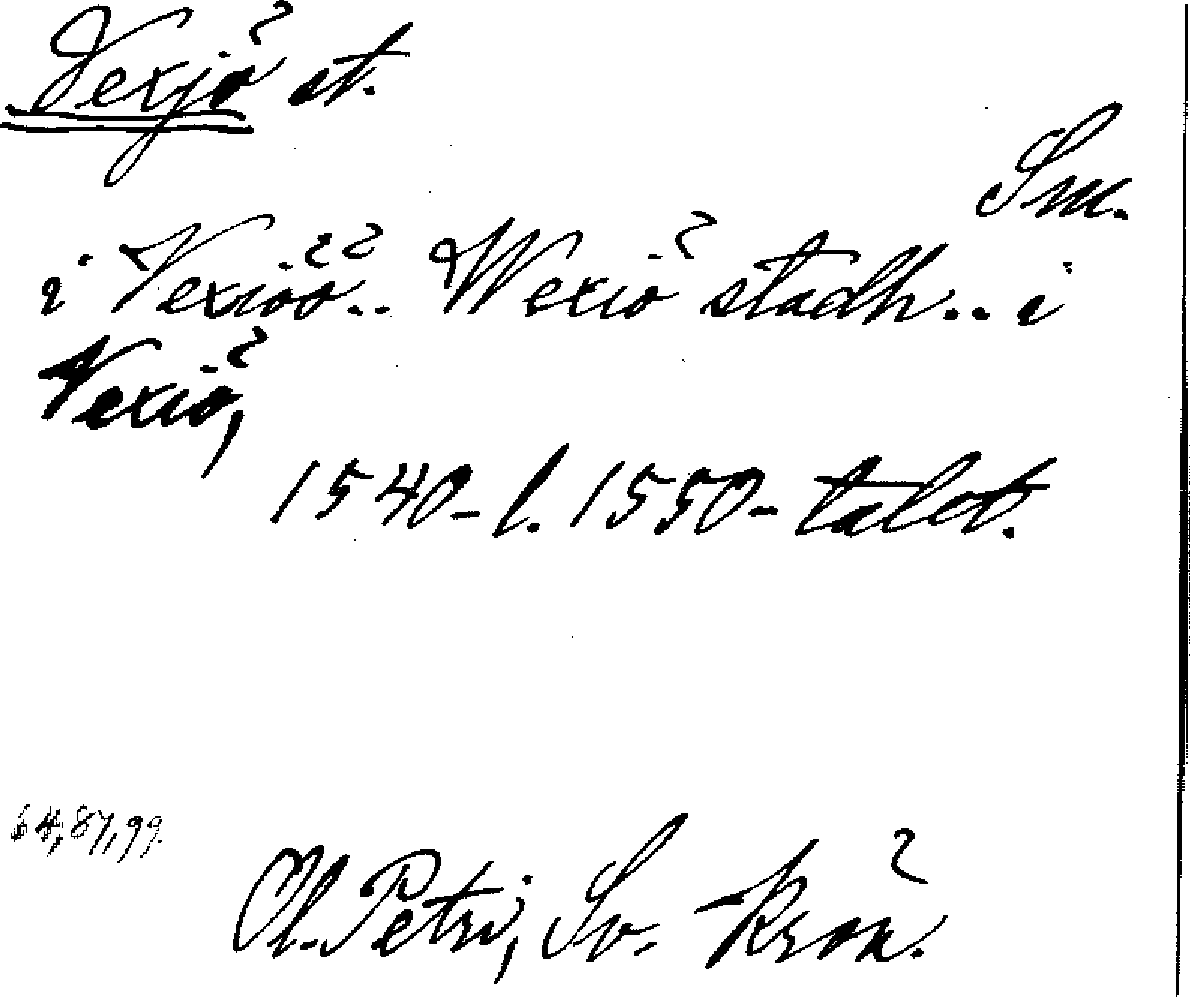 Vexjö st.
Sm.
i Vexiöö.. Wexiö stadh.. i
Vexiö,
1540- l. 1550-talet.
64, 87, 99.
Ol. Petri, Sv. krön.